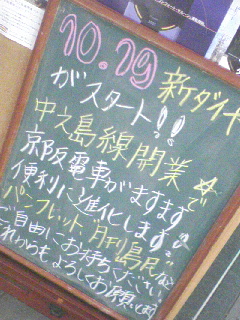 10.19 新ダイヤ
がスタート!!
中之島線開業☆で
京阪電車がますます
便利に進化します。
パンフレット、月刊島民など
ご自由にお持ちください。
これからもよろしくお願いします